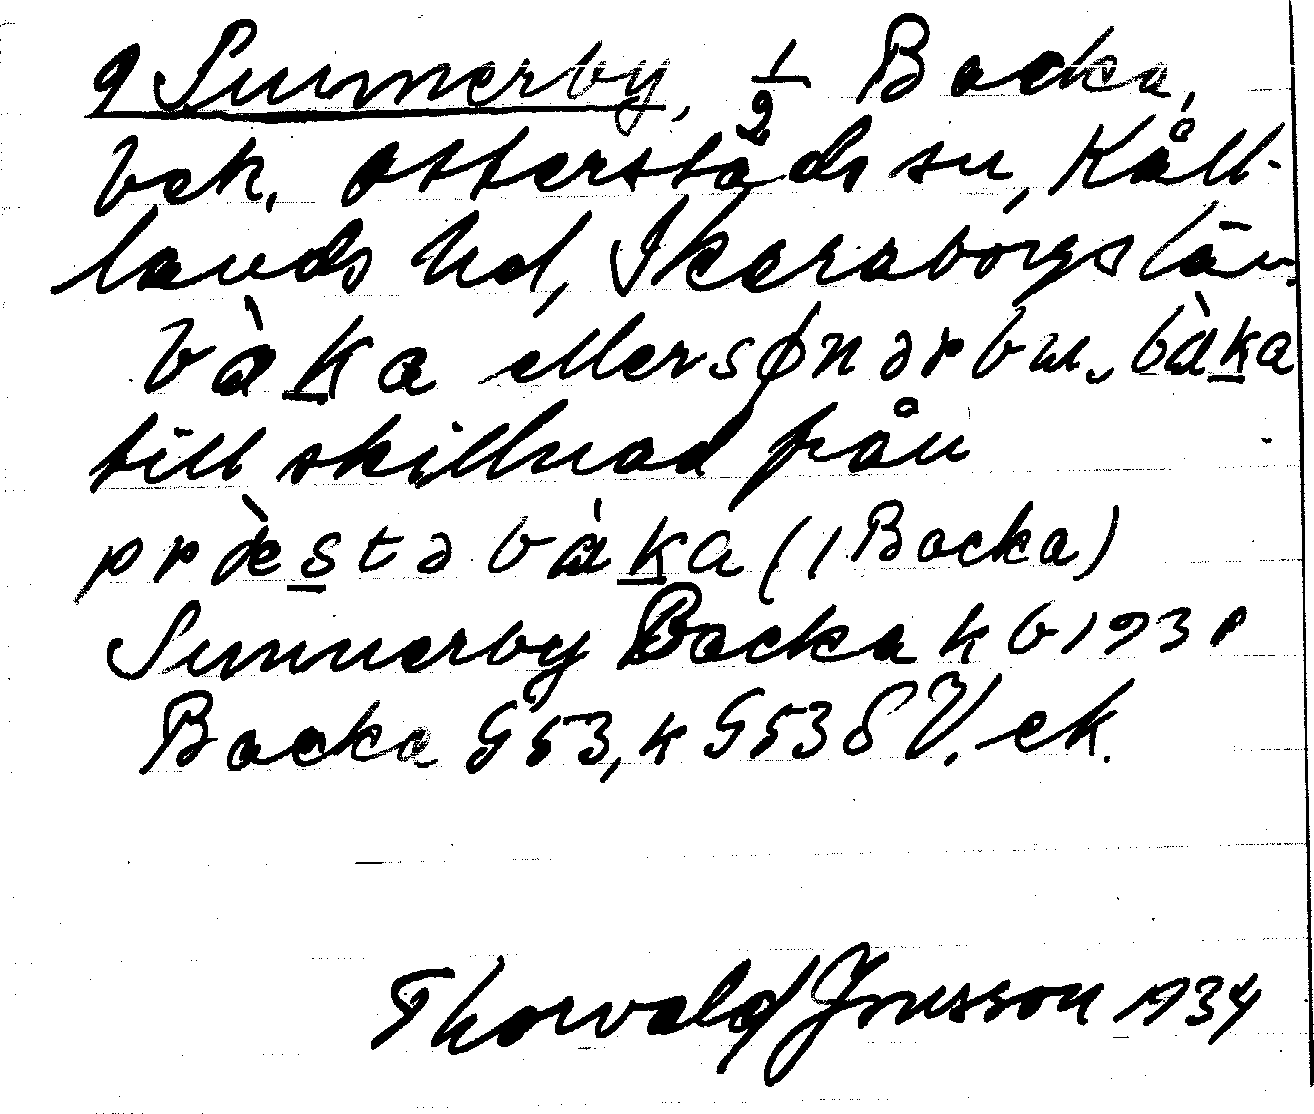 9 Sunnerby, 1/2 Backa,
bek. Otterstads sn, Kåll-
lands hd, Skaraborgs län.
bàka eller sønərbu. bàka
till skillnad från
præ̀stə bàka (1 Backa)
Sunnerby Backa k b 1931
Backa G 53, k G 53 SV. ek.
Thorvald Jonsson 1934